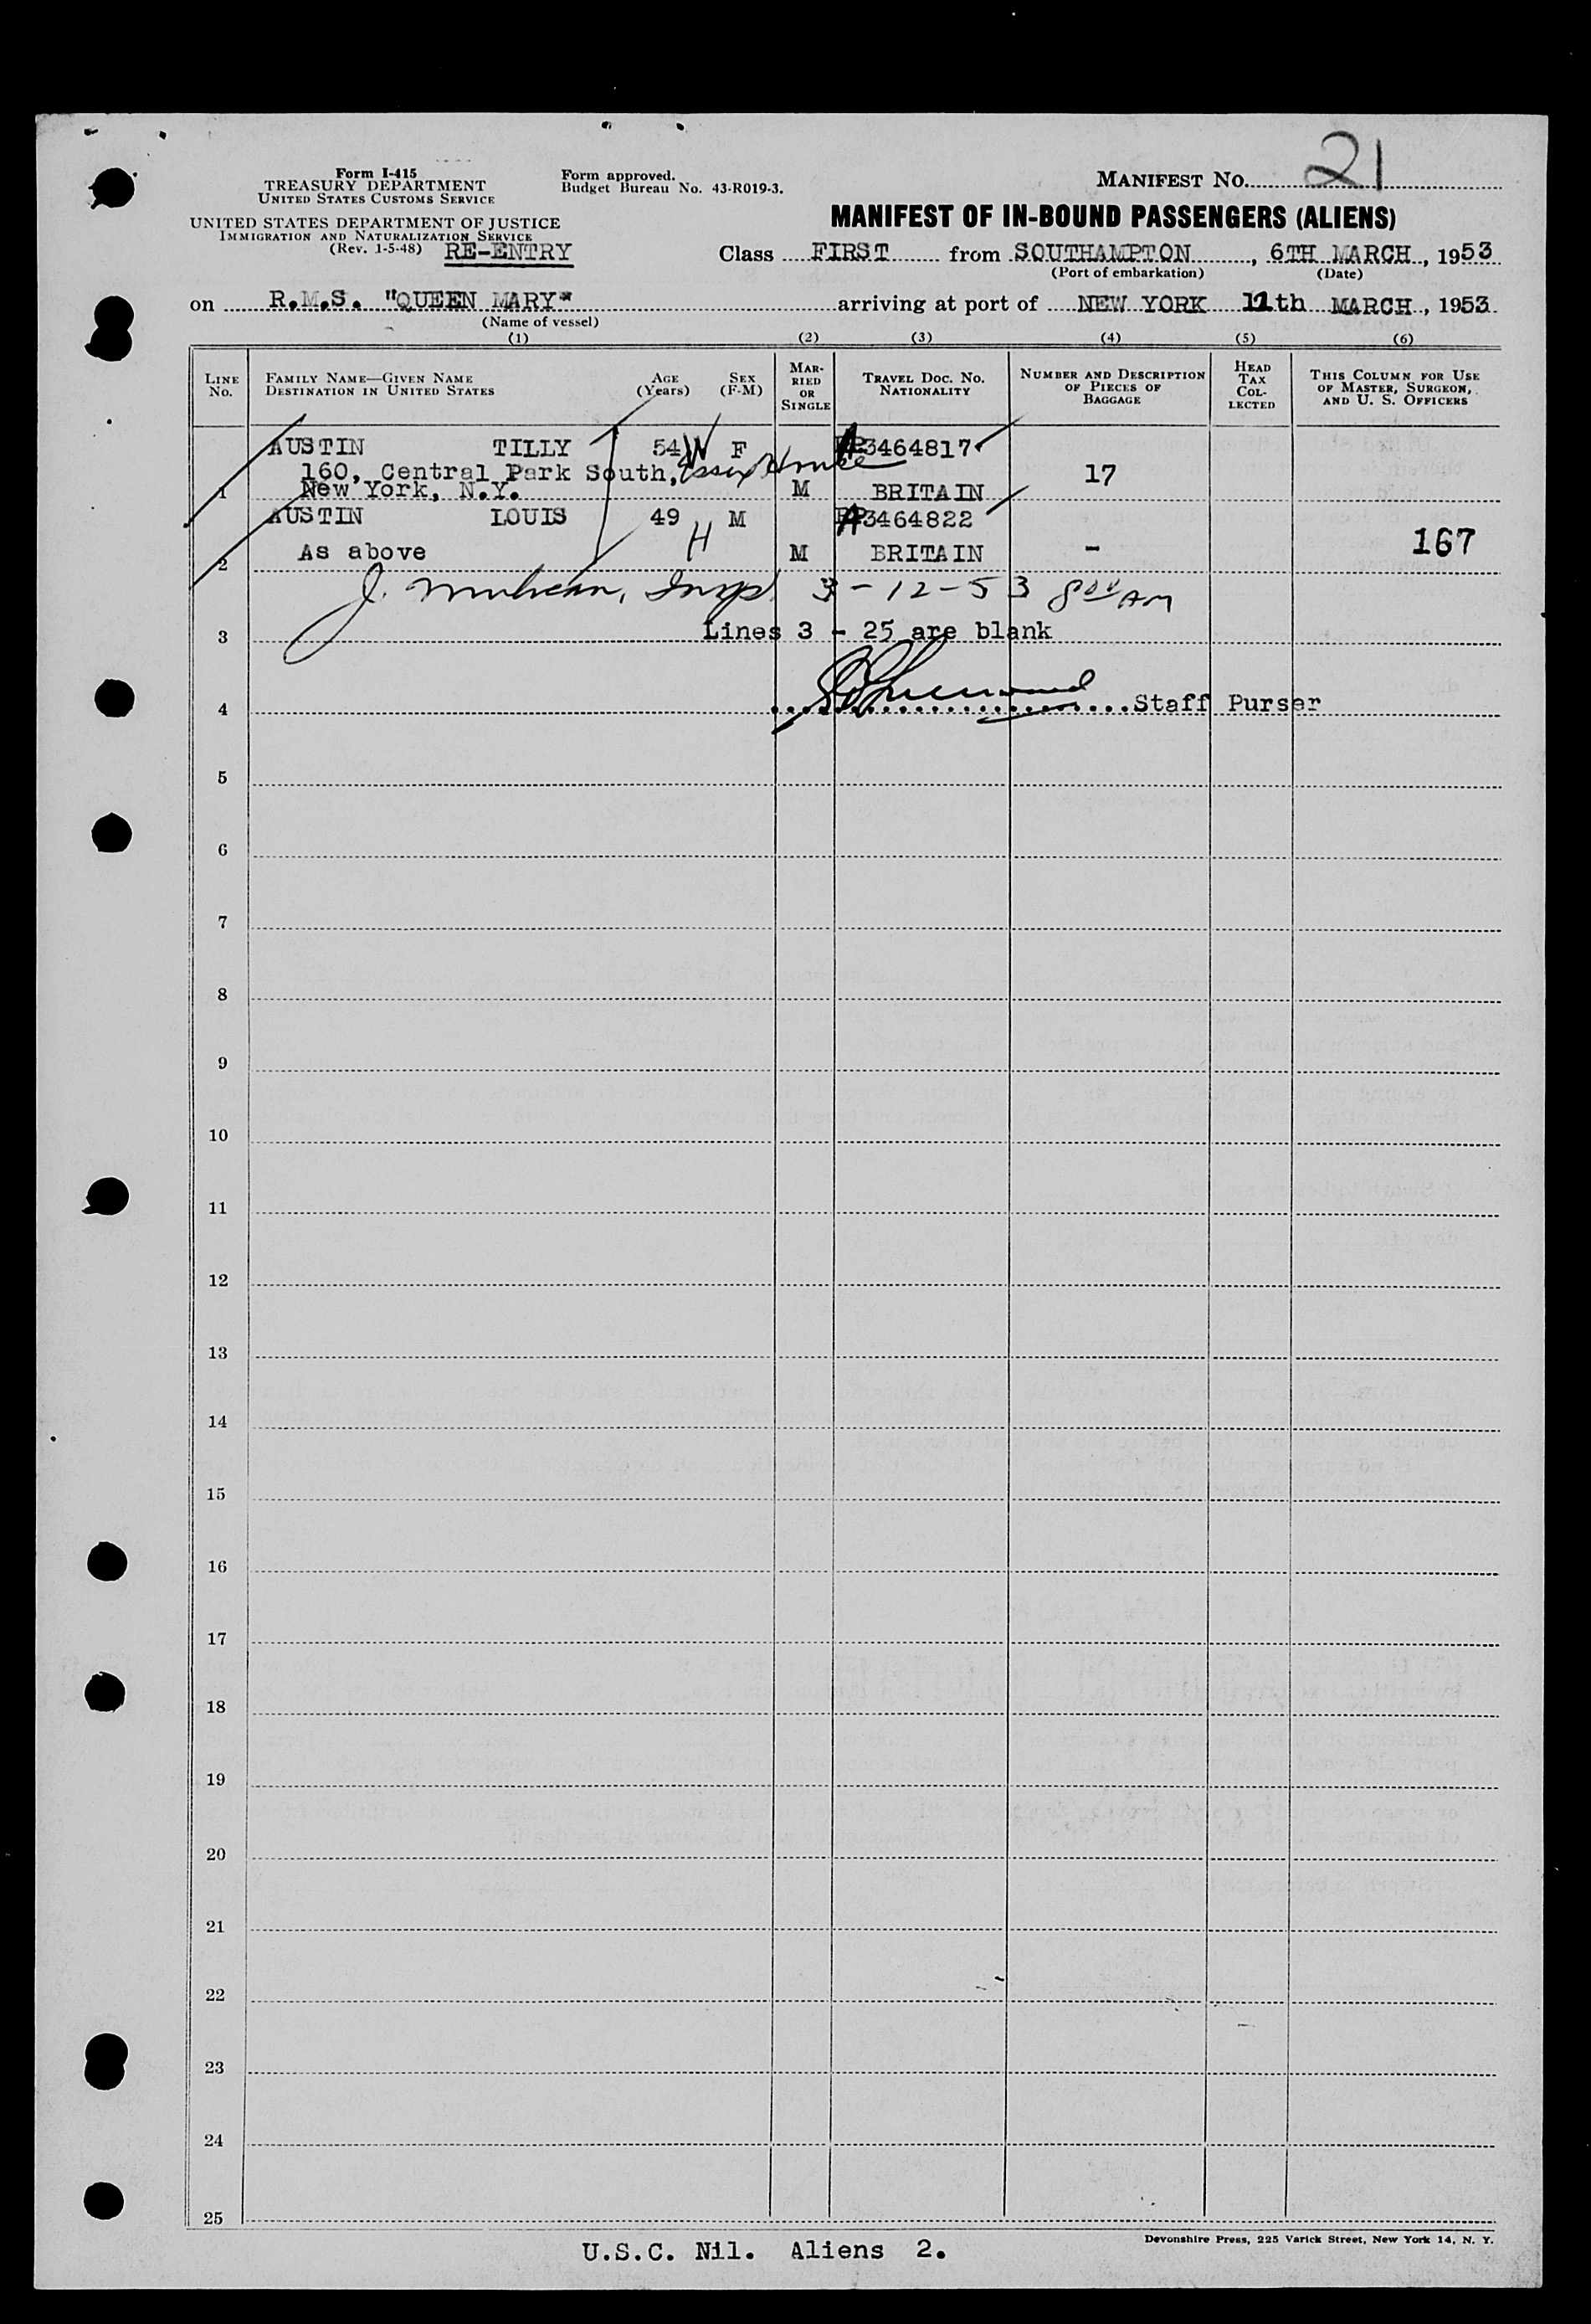 21
Form I-415
TREASURY DEPARTMENT
UNITED STATES CUSTOMS SERVICE
Form approved.
Budget Bureau No. 43-R019-3.
MANIFEST NO.
UNITED STATES DEPARTMENT OF JUSTICE
IMMIGRATION AND NATURALIZATION SERVICE
(Rev. 1-5-48) RE-ENTRY
MANIFEST OF IN-BOUND PASSENGERS (ALIENS)
Class FIRST from SOUTHAMPTON, 6TH MARCH, 1953
(Port of embarkation) (Date)
on R.M.S. "QUEEN MARY" arriving at port of NEW YORK 11th MARCH, 1953
(Name of vessel)
(1) (2) (3) (4) (5) (6)
LINE NO.
FAMILY NAME—GIVEN NAME
DESTINATION IN UNITED STATES
AGE (Years)
SEX (F-M)
MARRIED OR SINGLE
TRAVEL DOC. NO.
NATIONALITY
NUMBER AND DESCRIPTION OF PIECES OF BAGGAGE
HEAD TAX COLLECTED
THIS COLUMN FOR USE OF MASTER, SURGEON, AND U. S. OFFICERS
AUSTIN TILLY 54 W F 3464817
160, Central Park South, Essex House 17
1 New York, N.Y. M BRITAIN
AUSTIN LOUIS 49 H M 3464822
2 As above M BRITAIN - 167
J. Insp. 3-12-53 8 00 AM
3 Lines 3 - 25 are blank
4 Staff Purser
5
6
7
8
9
10
11
12
13
14
15
16
17
18
19
20
21
22
23
24
25
Devonshire Press, 225 Varick Street, New York 14, N. Y.
U.S.C. Nil. Aliens 2.